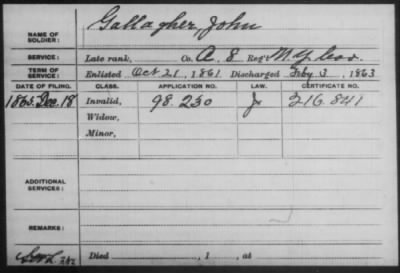 Gallagher, John
NAME OF SOLDIER:
SERVICE: Late rank, Co. A. 8 Reg't N.Y. Cav.
TERM OF SERVICE: Enlisted Oct 21, 1861 Discharged Feby 3, 1863
DATE OF FILING. CLASS. APPLICATION NO. LAW. CERTIFICATE NO.
1865 Dec. 18 Invalid, 98.230 316.841
Widow,
Minor,
ADDITIONAL SERVICES:
REMARKS:
Died , 1 , at